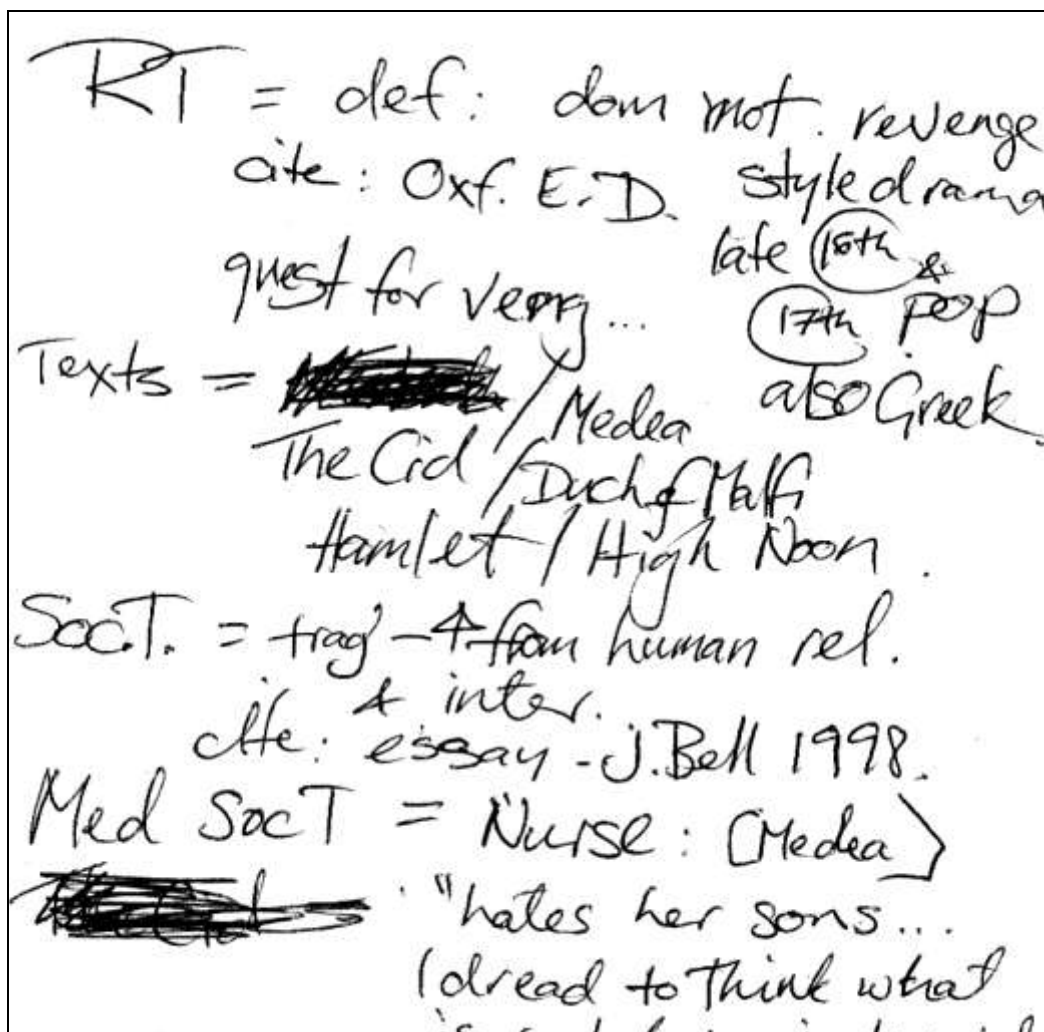 RT = def: dom mot. revenge
cite: Oxf. E.D. style drama
late 16th &
quest for veng... 17th pop
Texts = / Medea also Greek.
The Cid / Duch of Malfi
Hamlet / High Noon.
Soc.T. = trag' - from human rel.
& inter.
cite: essay - J. Bell 1998.
Med SocT = Nurse: [Medea]
"hates her sons...
I dread to think what